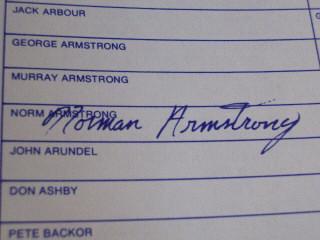 JACK ARBOUR
GEORGE ARMSTRONG
MURRAY ARMSTRONG
NORM ARMSTRONG
Norman Armstrong
JOHN ARUNDEL
DON ASHBY
PETE BACKOR